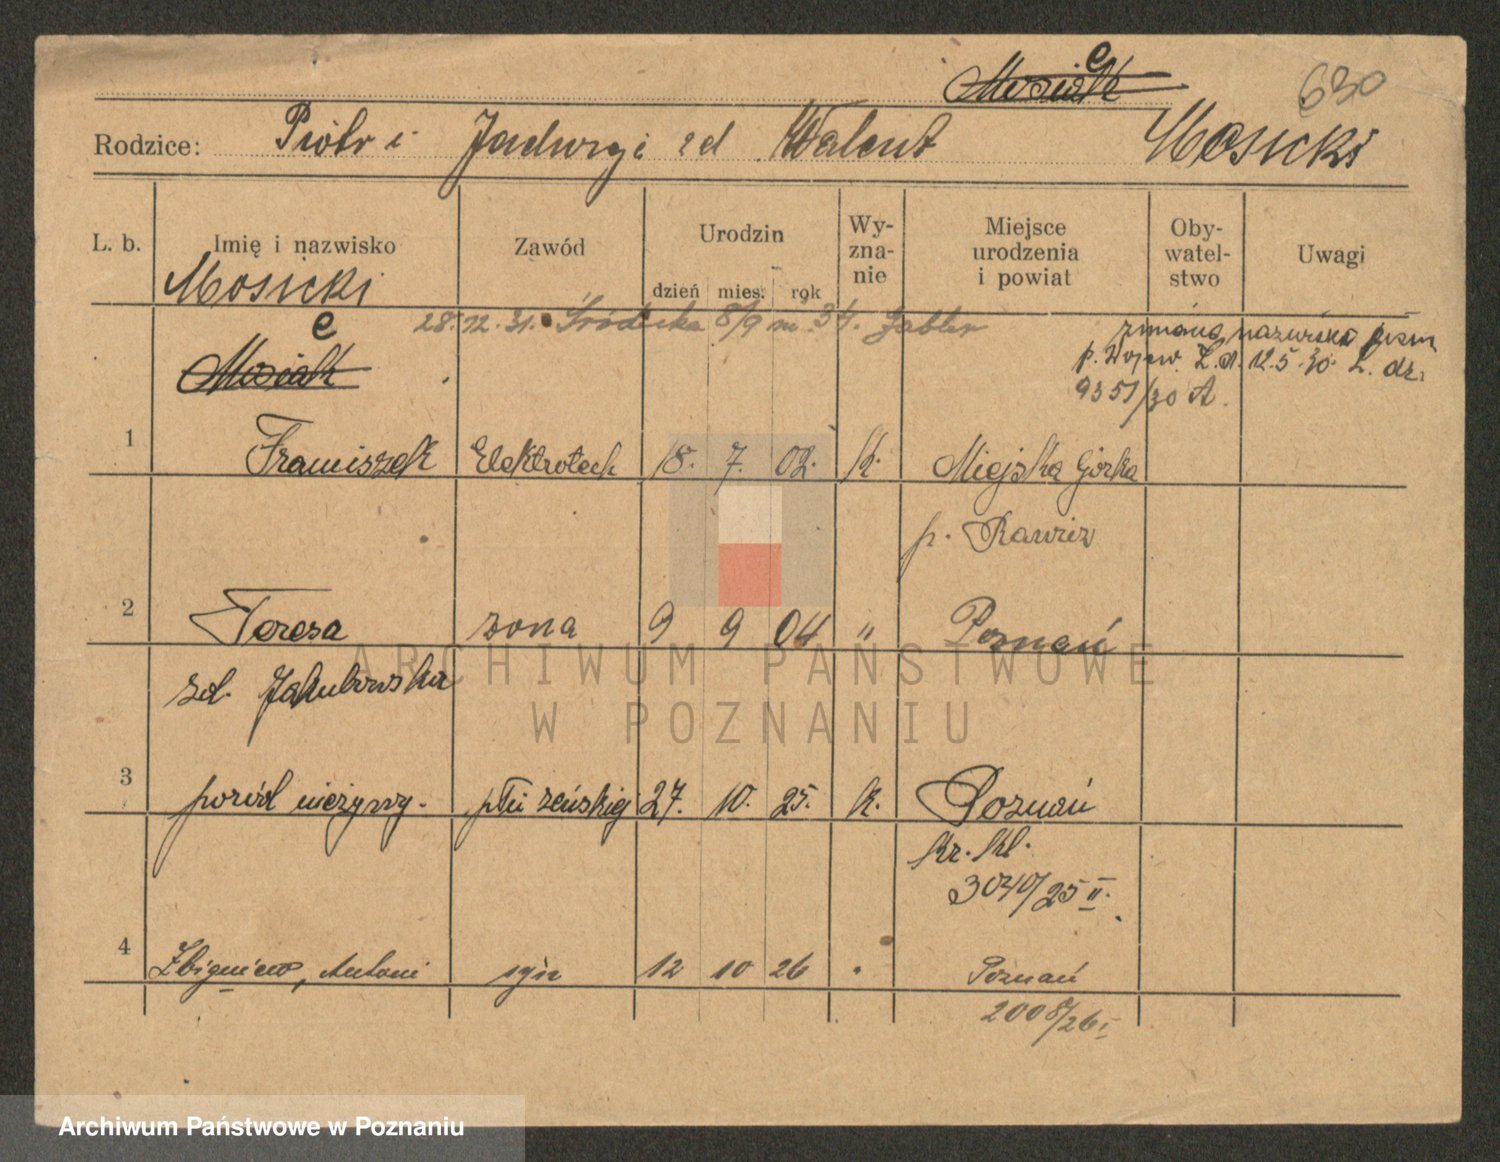 Mosiek 630
Rodzice: Piotr i Jadwigi zd. Walent Mosicki
L. b. Imię i nazwisko Zawód Urodzin dzień mies. rok Wy-zna-nie Miejsce urodzenia i powiat Oby-watel-stwo Uwagi
Mosicki
28.12.31. Śródecka 8/9 m. 34.
zmiana nazwiska pism
p. Wojew. Z. d. 12.5.30. L. dz.
9351/30 A.
Mosiek
1 Franciszek Elektrotech 18. 7. 02. K. Miejska Górka
p. Rawicz
2 Teresa żona 9 9 04 " Poznań
zd. Jakubowska
3 poród nieżywy. płci żeńskiej 27. 10. 25. K. Poznań
kr. kl.
3040/25 II.
4 Zbigniew, Antoni syn 12 10 26 " Poznań
2008/26 I
ARCHIWUM PAŃSTWOWE
W POZNANIU
Archiwum Państwowe w Poznaniu